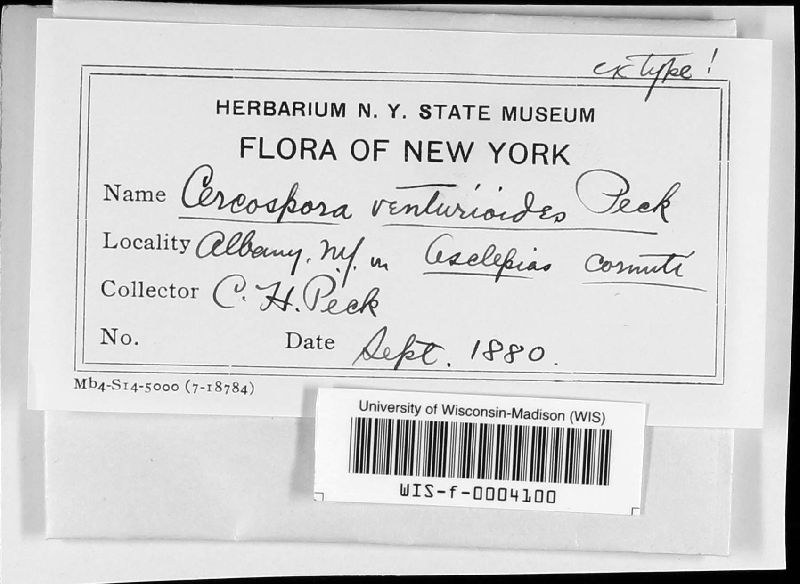 ex type!
HERBARIUM N. Y. STATE MUSEUM
FLORA OF NEW YORK
Name Cercospora venturioides Peck
Locality Albany, N.Y. on Asclepias cornuti
Collector C. H. Peck
No. Date Sept. 1880.
Mb4-S14-5000 (7-18784)
University of Wisconsin-Madison (WIS)
WIS-f-0004100